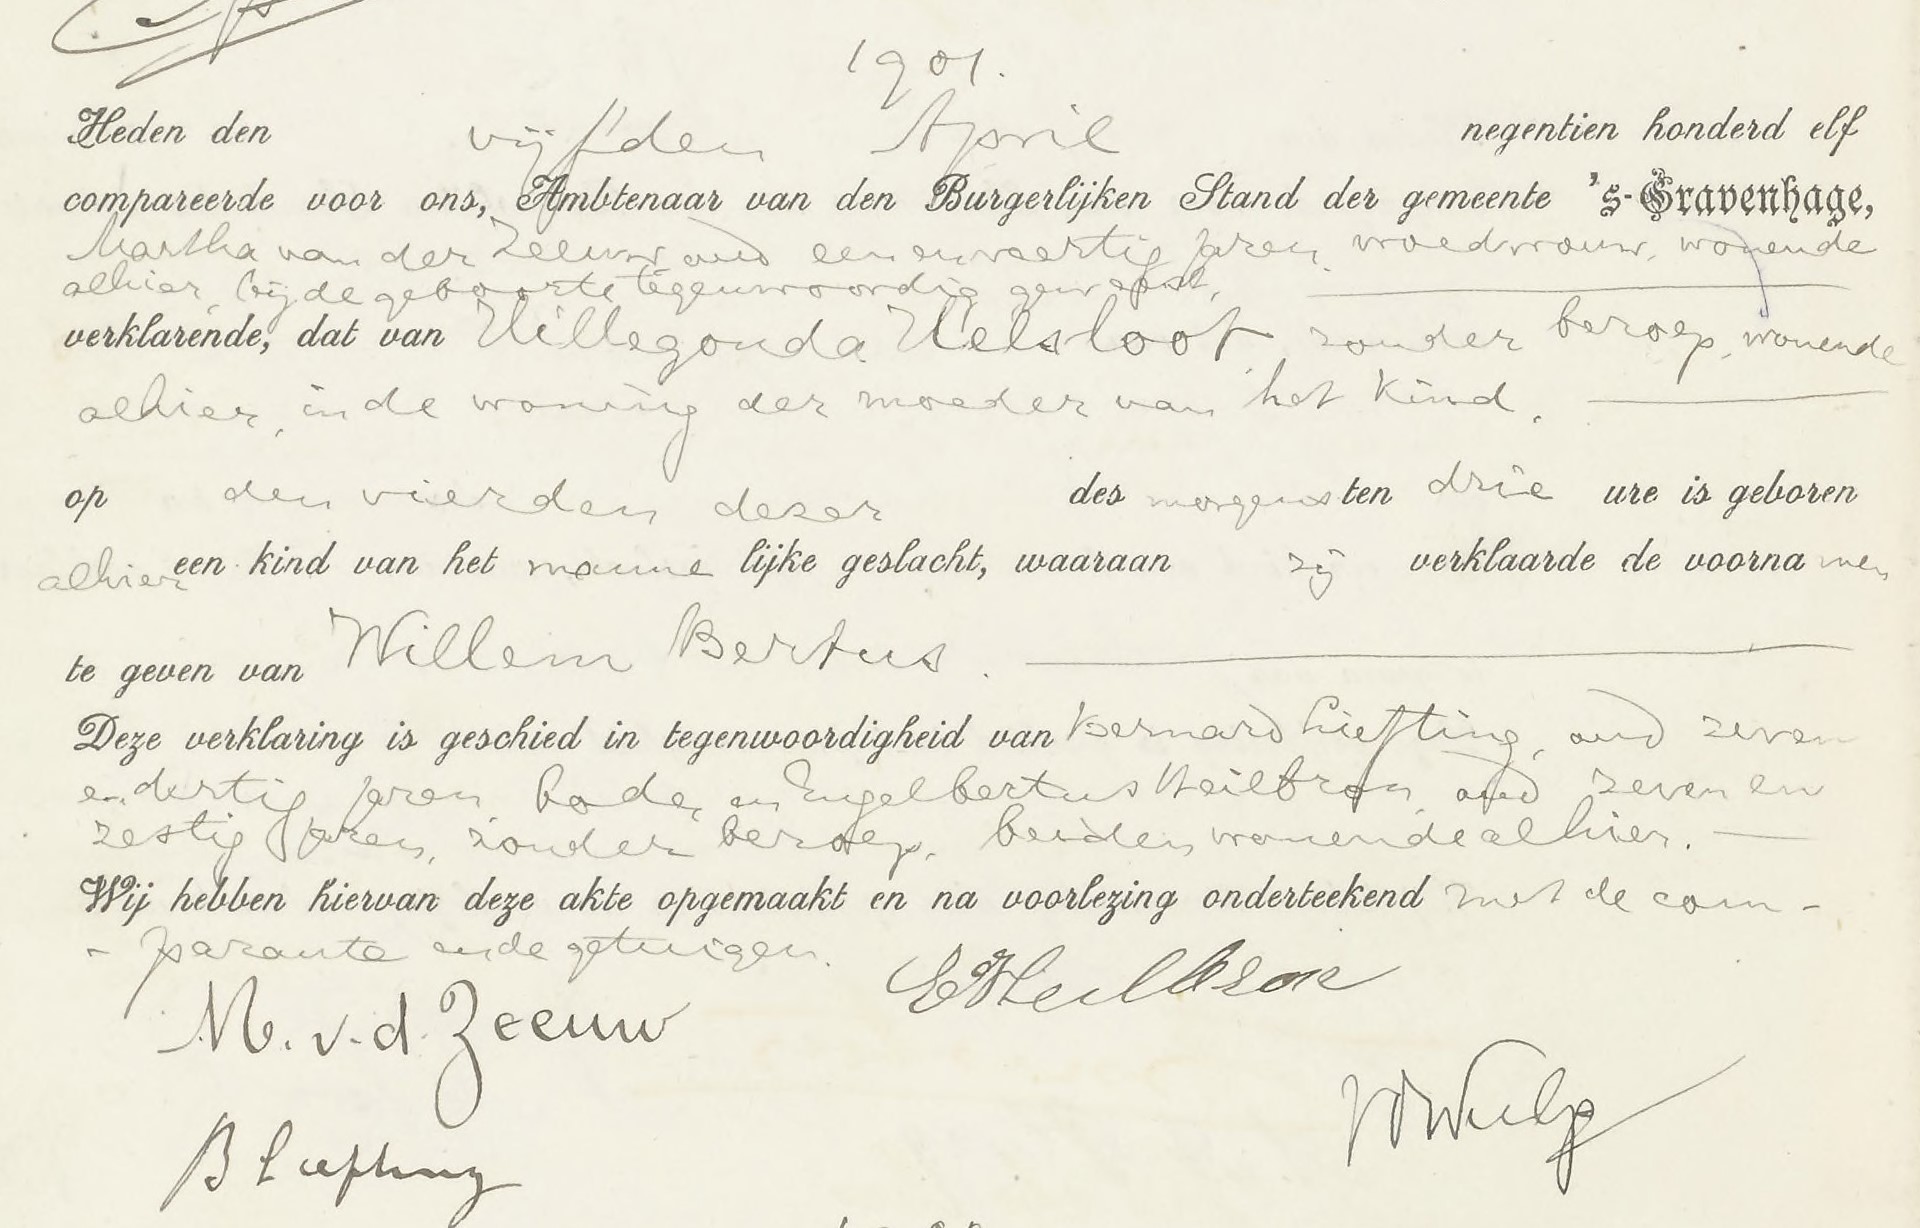 1901.
Heden den vijfden April negentien honderd elf
compareerde voor ons, Ambtenaar van den Burgerlijken Stand der gemeente 's-Gravenhage,
Martha van der Zeeuw oud een en veertig jaren, vroedvrouw, wonende
alhier, bij de geboorte tegenwoordig geweest,
verklarende, dat van Hillegonda Helsloot, zonder beroep, wonende
alhier, in de woning der moeder van het kind,
op den vierden dezer des morgens ten drie ure is geboren
alhier een kind van het manne lijke geslacht, waaraan zij verklaarde de voorna men
te geven van Willem Bertus.
Deze verklaring is geschied in tegenwoordigheid van Bernard Liefting, oud zeven
en dertig jaren, bode, en Engelbertus Heilbron, oud zeven en
zestig jaren, zonder beroep, beiden wonende alhier.
Wij hebben hiervan deze akte opgemaakt en na voorlezing onderteekend met de com-
- parante en de getuigen.
EHeilbron
M. v. d. Zeeuw
vdWulp
B Liefting